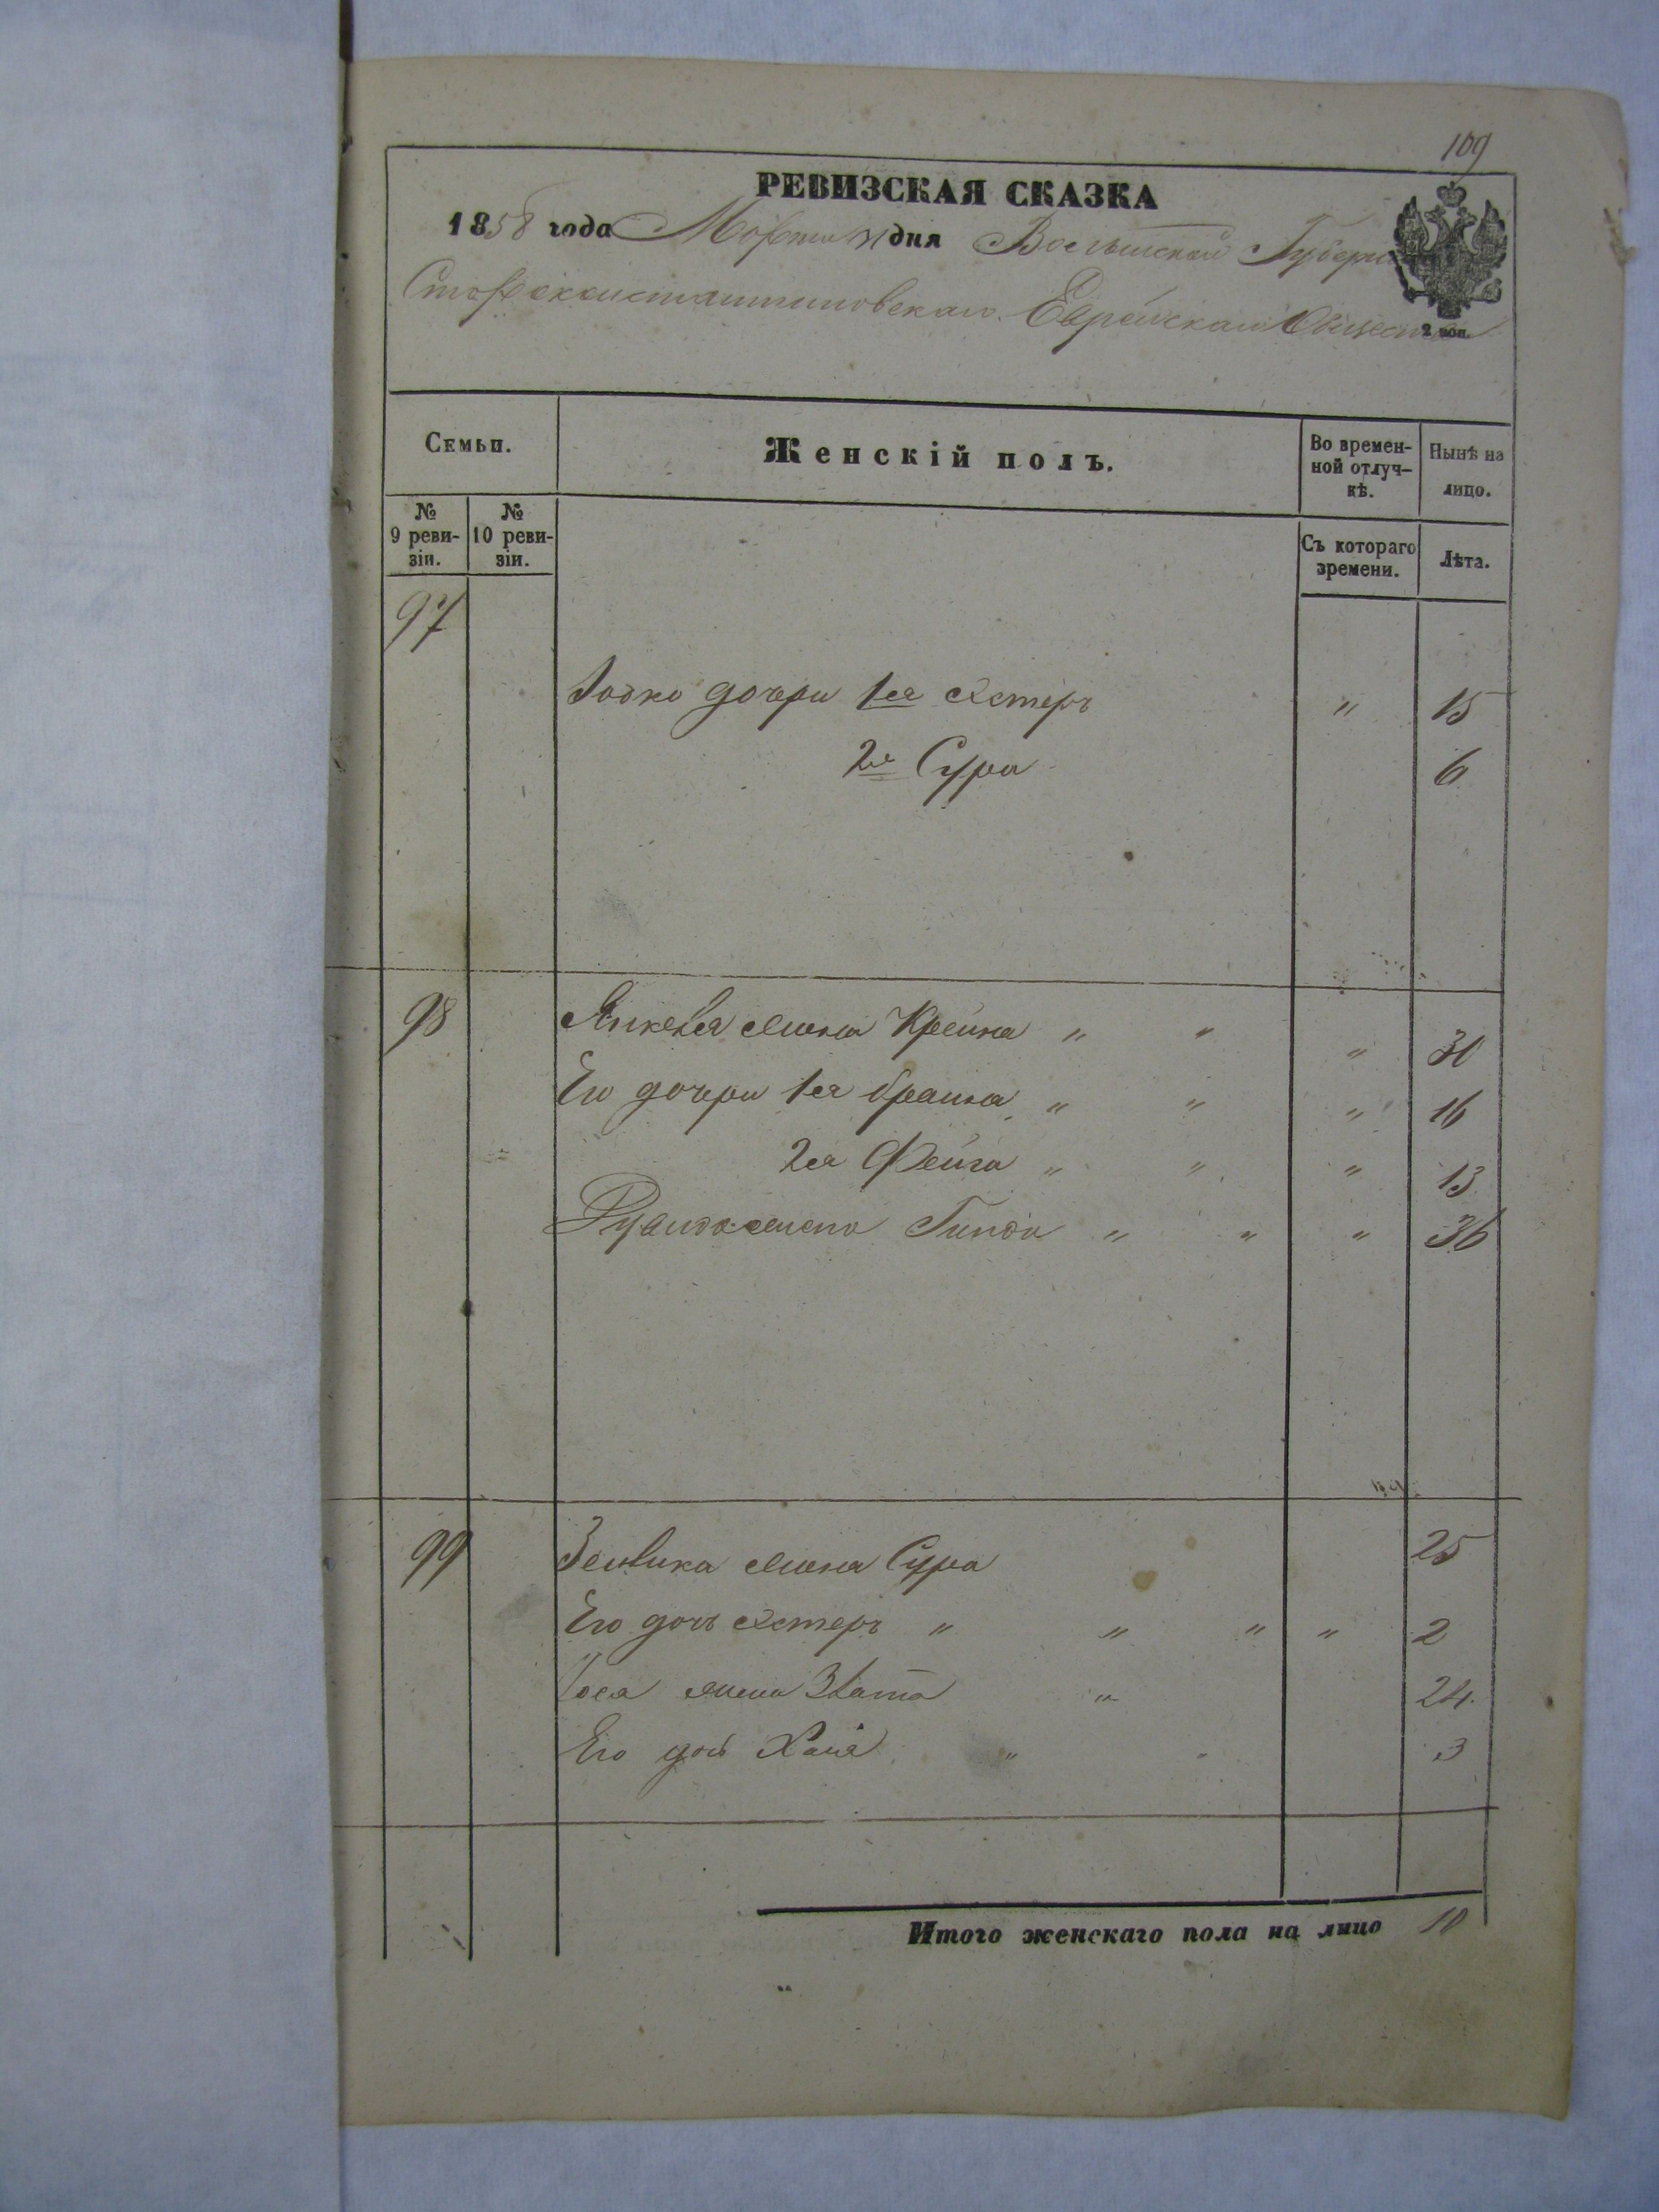 109
РЕВИЗСКАЯ СКАЗКА
1858 года Марта 31 дня Волынской Губернии
Староконстантиновскаго Еврейскаго Общества
2 коп.
Семьи.
Женскій полъ.
Во времен-
ной отлуч-
кѣ.
Нынѣ на
лицо.
№
9 реви-
зіи.
№
10 реви-
зіи.
Съ котораго
времени.
Лѣта.
97
дочери 1ая Эстеръ " 15
2я Сура 6
98 Янкеля жена Крейна " " " 30
Его дочери 1ая " " " 16
2ая Фейга " " " 13
жена Гинда " " " 36
99 Зельвика жена Сура 25
Его дочь Эстеръ " " " " 2
жена Злата " 24
Его дочь Хая " " 3
Итого женскаго пола на лицо 10